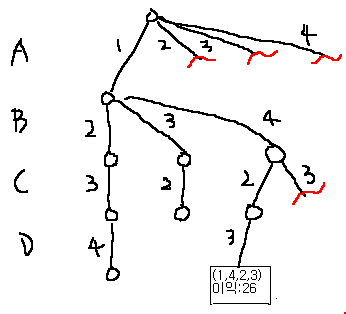 1 2 3 4
A
2 3 4
B
3 2 2 3
C
4 3
D
(1,4,2,3)
이익:26